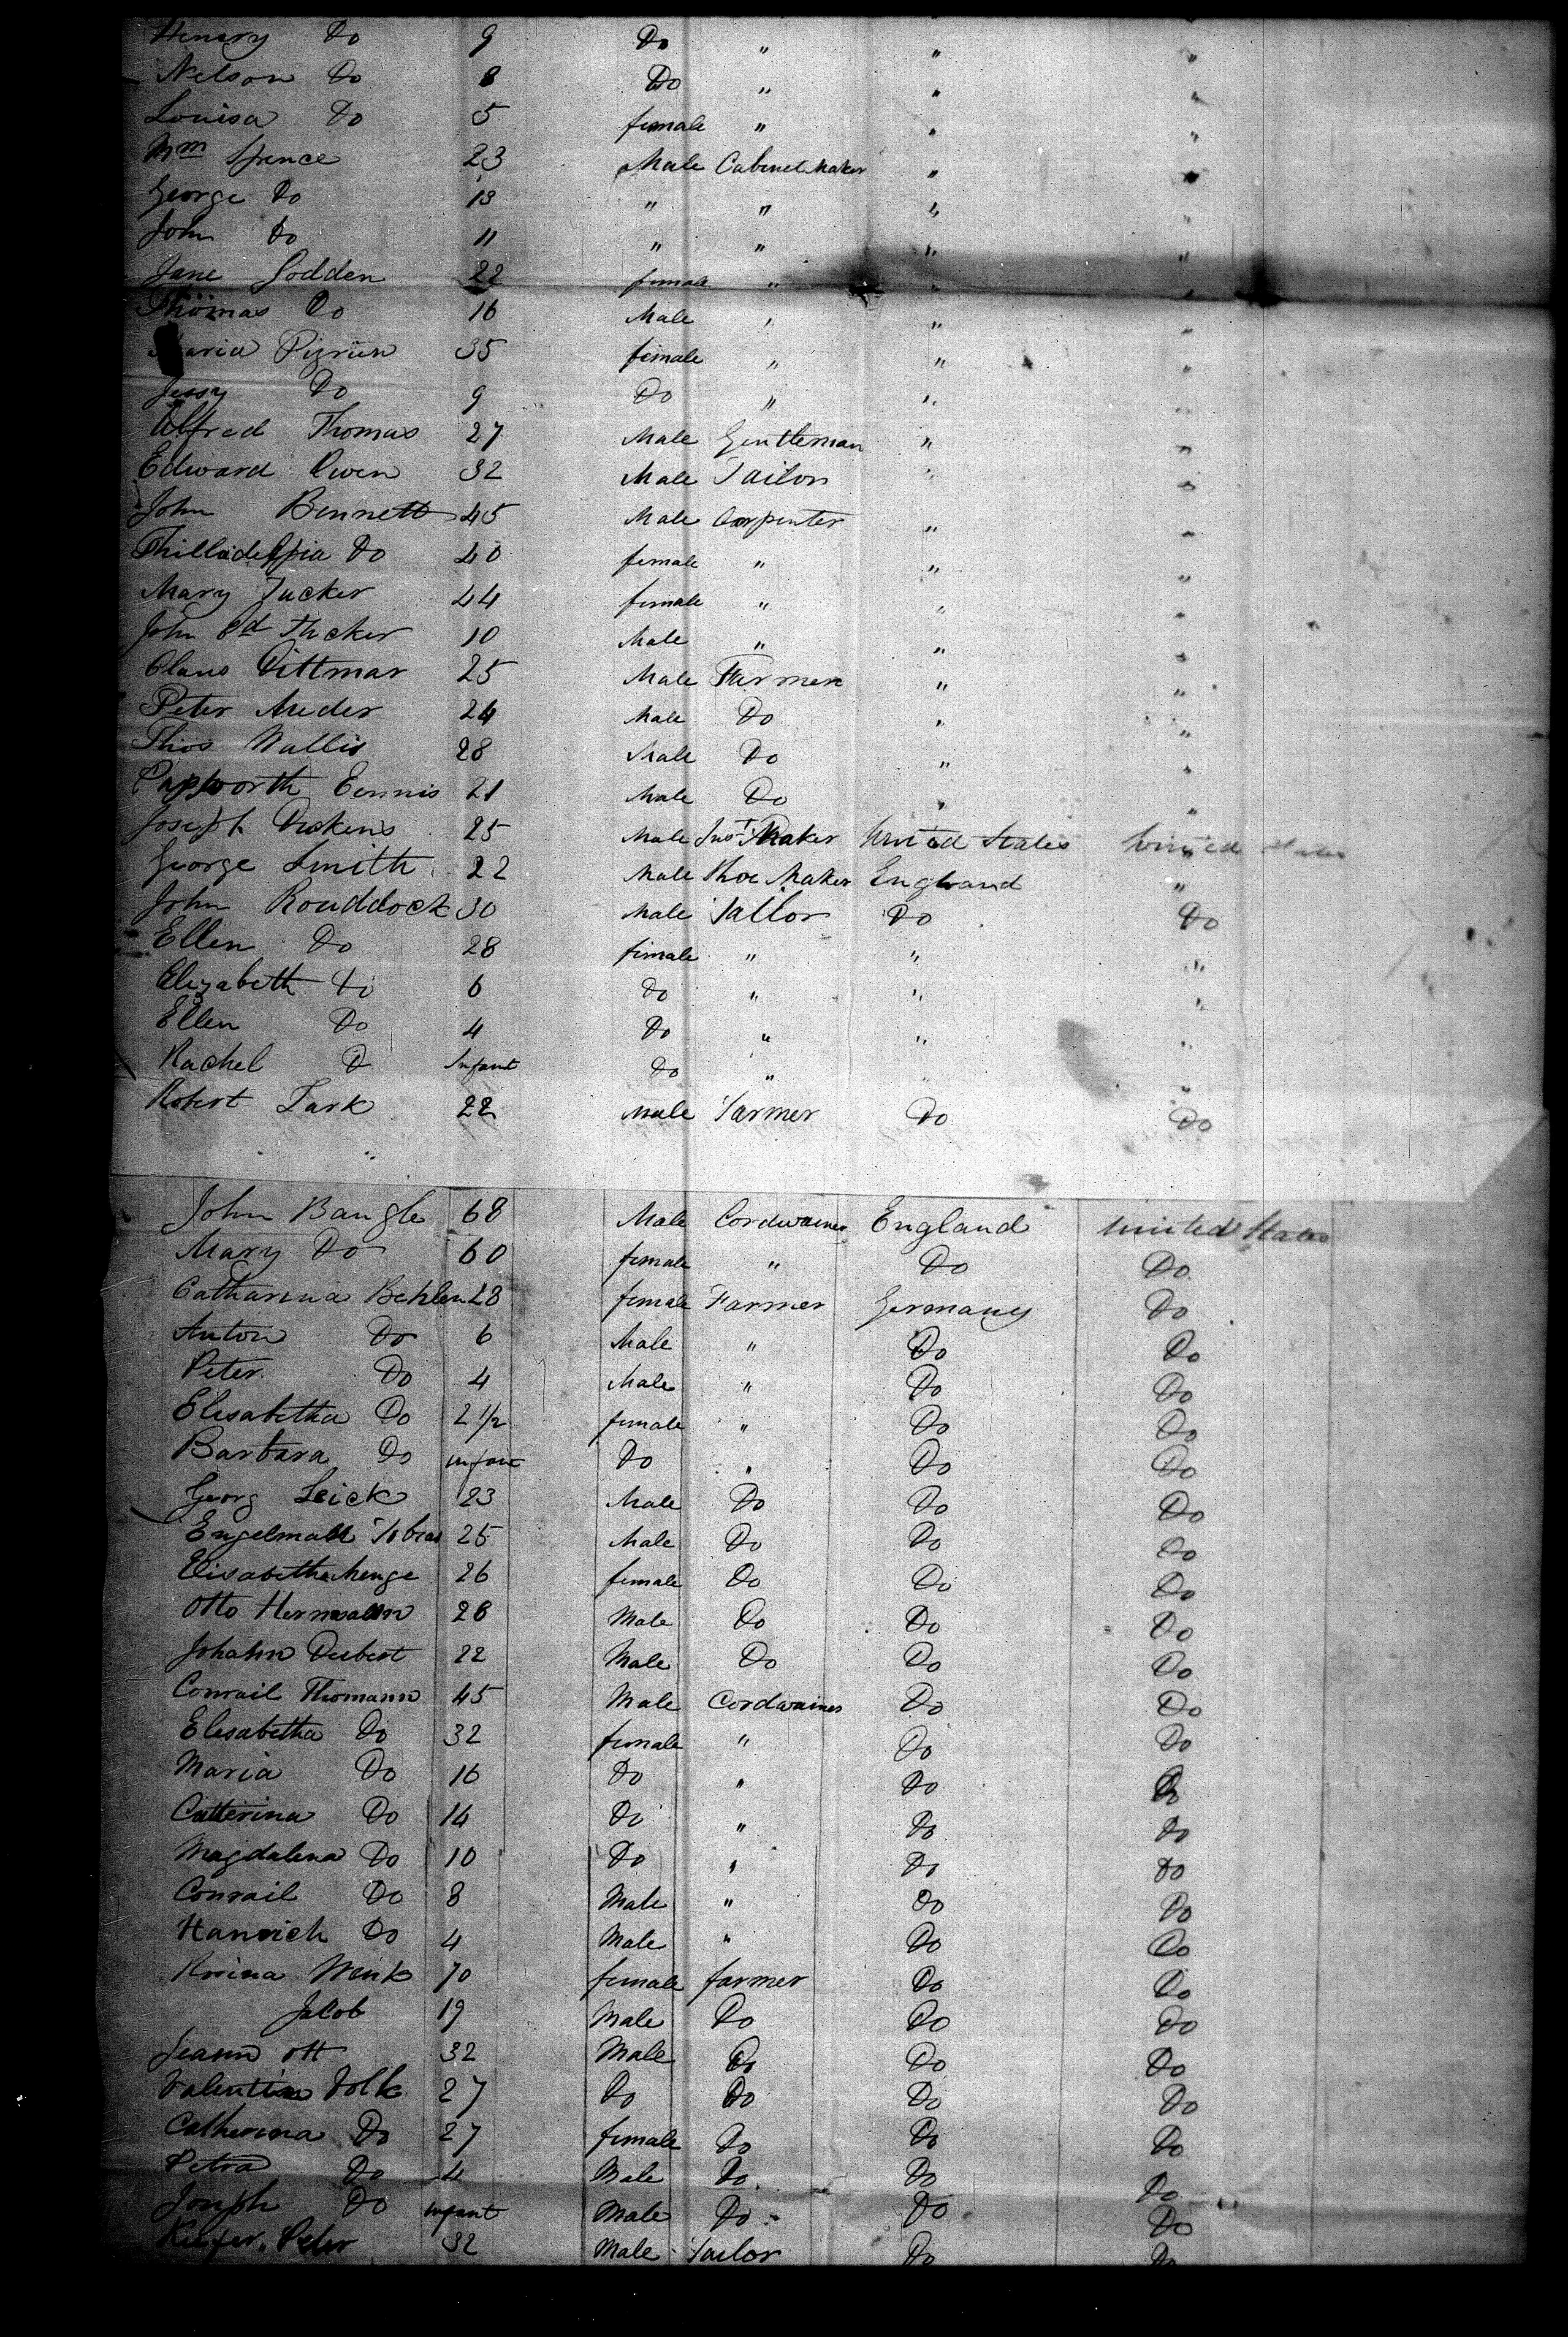 Henery Do 9 Do " " "
Nelson Do 8 Do " " "
Louisa Do 5 female " " "
Wm Spence 23 Male Cabinet Maker " "
George Do 13 " " " "
John Do 11 " " " "
Jane Sodden 22 female " " "
Thomas Do 16 Male " " "
Maria 35 female " " "
Jessy Do 9 Do " " "
Alfred Thomas 27 Male Gentleman " "
Edward Owen 32 Male Tailor " "
John Bennett 45 Male Carpenter " "
Philladelpia Do 40 female " " "
Mary Tucker 44 female " " "
John Ed Tucker 10 Male " " "
Claus Dittmar 25 Male Farmer " "
Peter 24 Male Do " "
Thos Wallis 28 Male Do " "
Papworth Eennis 21 Male Do " "
Joseph Dickens 25 Male Inst Maker United States United States
George Smith 22 Male Shoe Maker England "
John Rouddock 30 Male Tailor Do Do
Ellen Do 28 female " " "
Elizabeth Do 6 Do " " "
Ellen Do 4 Do " " "
Rachel D Infant Do " " "
Robert Tark 22 Male Farmer Do Do
John Bangle 68 Male Cordwainer England United States
Mary Do 60 female " Do Do
Catharina Behlen 28 female Farmer Germany Do
Anton Do 6 Male " Do Do
Peter Do 4 Male " Do Do
Elisabetha Do 2 1/2 female " Do Do
Barbara Do infant Do " Do Do
Georg Leick 23 Male Do Do Do
Engelmann Tobias 25 Male Do Do Do
Elisabetha Menge 26 female Do Do Do
Otto Hermann 28 Male Do Do Do
Johann Deubert 22 Male Do Do Do
Conrail Thomann 45 Male Cordwainer Do Do
Elisabetha Do 32 female " Do Do
Maria Do 16 Do " Do Do
Catterina Do 14 Do " Do Do
Magdalena Do 10 Do " Do Do
Conrail Do 8 Male " Do Do
Hanrich Do 4 Male " Do Do
Rosina Wink 70 female farmer Do Do
Jacob 19 Male Do Do Do
Jeann Ott 32 Male Do Do Do
Valentin Volk 27 Do Do Do Do
Catherina Do 27 female Do Do Do
Petra Do 4 Male Do Do Do
Joseph Do infant Male Do Do Do
Kiefer Peter 32 Male Tailor Do Do